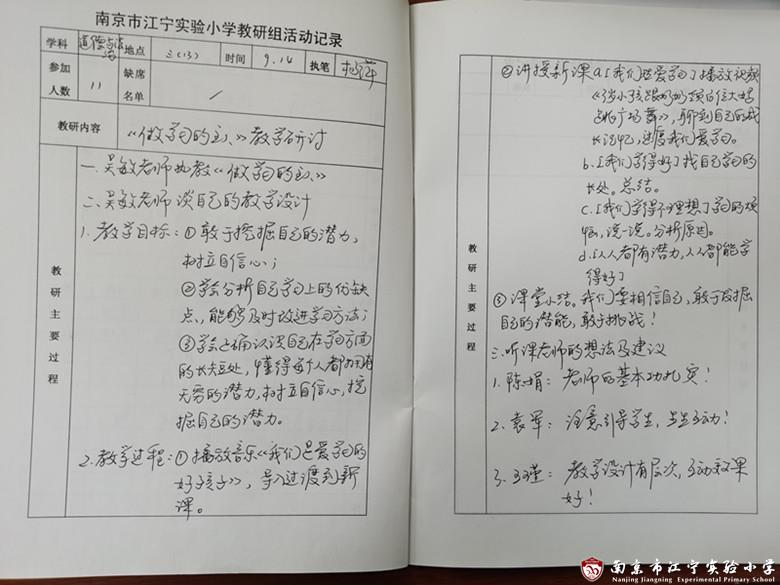 南京市江宁实验小学教研组活动记录
学科 道德与法治 地点 三(13) 时间 9.14 执笔
参加人数 11 缺席名单 /
教研内容 《做学习的主人》教学研讨
教研主要过程
一、吴敏老师执教《做学习的主人》
二、吴敏老师谈自己的教学设计
1.教学目标:①敢于挖掘自己的潜力,
树立自信心;
②学会分析自己学习上的优缺
点,能够及时改进学习方法;
③学会正确认识自己在学习方面
的长短处,懂得每个人都拥有
无穷的潜力,树立自信心,挖
掘自己的潜力。
2.教学过程:①播放音乐《我们是爱学习的
好孩子》,导入过渡到新
课。
教研主要过程
②讲授新课a.[我们也爱学习]播放视频
《小孩跟奶奶领白信大妈
跳广场舞》,聊到自己的成
长记忆,过渡我们爱学习。
b.[我们学得好]找自己学习的
长处。总结。
c.[我们学得不理想]学习的烦
恼,说一说。分析原因。
d.[人人都有潜力,人人都能学
得好]
③课堂小结。我们要相信自己,敢于挖掘
自己的潜能,敢于挑战!
三、听课老师的想法及建议
1.陈娟:老师的基本功扎实!
2.袁军:注意引导学生,生生互动!
3.王瑾:教学设计有层次,互动效果
好!
南京市江宁实验小学
Nanjing Jiangning Experimental Primary School